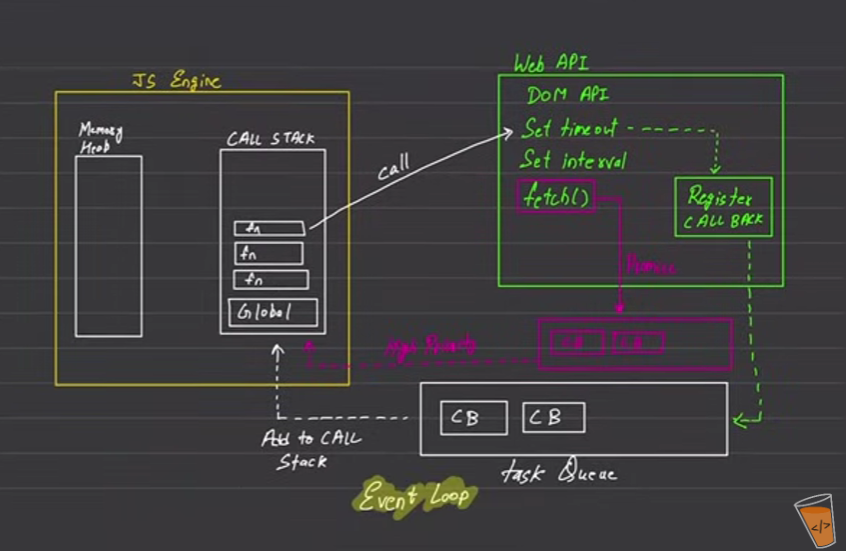 JS Engine
Memory
Heab
CALL STACK
fn
fn
fn
Global
call
Web API
DOM API
Set timeout
Set interval
fetch()
Register
CALL BACK
Promise
High Priority
CB CB
CB CB
Add to CALL
Stack
task Queue
Event Loop
</>